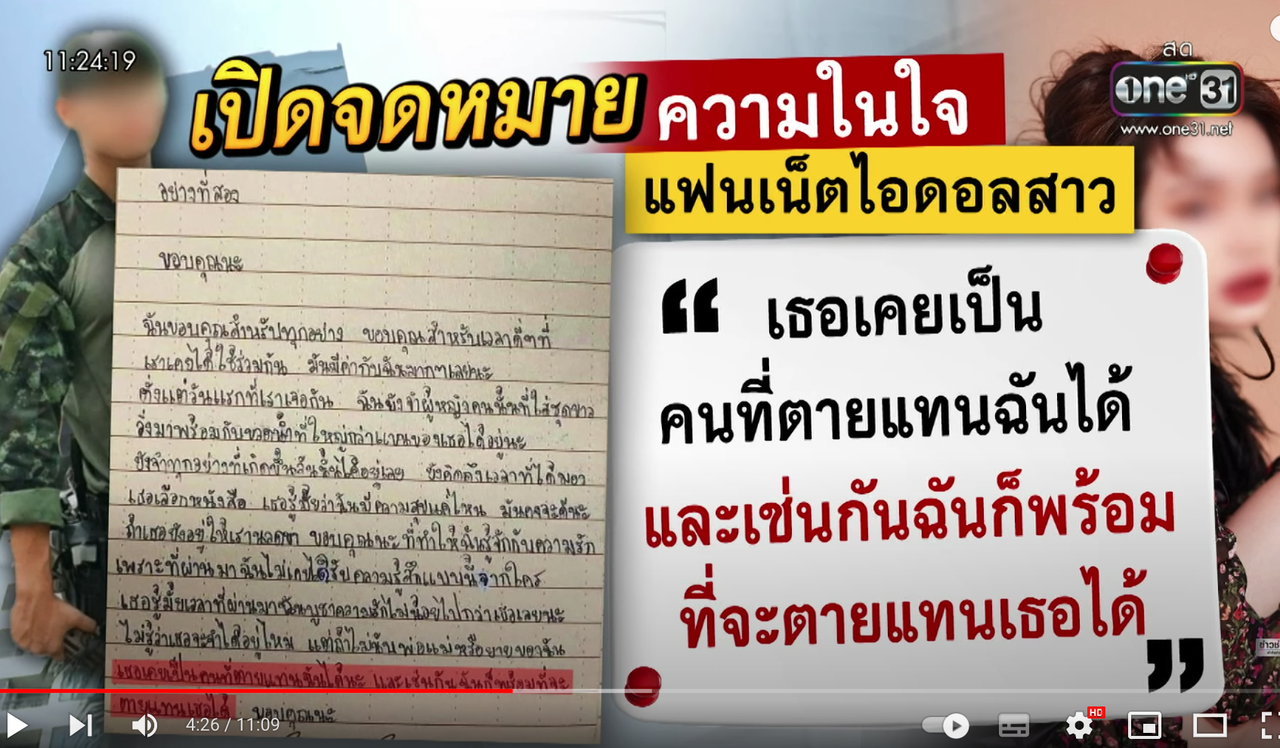 11:24:19
สด
one HD 31
www.one31.net
เปิดจดหมาย ความในใจ
แฟนเน็ตไอดอลสาว
“ เธอเคยเป็น
คนที่ตายแทนฉันได้
และเช่นกันฉันก็พร้อม
ที่จะตายแทนเธอได้ ”
อย่างที่สอง
ขอบคุณนะ
ฉันขอบคุณสำหรับทุกอย่าง ขอบคุณสำหรับเวลาดีๆที่
เราเคยได้ใช้ร่วมกัน มันมีค่ากับฉันมากๆเลยนะ
ตั้งแต่วันแรกที่เราเจอกัน ฉันยังจำผู้หญิงคนนั้นที่ใส่ชุดขาว
วิ่งมาพร้อมกับขวดน้ำที่ใหญ่กว่าแขนของเธอได้อยู่นะ
ยังจำทุกอย่างที่เกิดขึ้นวันนั้นได้อยู่เลย ยังคิดถึงเวลาที่ได้มอง
เธอเลือกหนังสือ เธอรู้มั้ยว่าฉันมีความสุขแค่ไหน มันคงจะดีนะ
ถ้าเธอยังอยู่ให้เรา ขอบคุณนะที่ทำให้ฉันรู้จักกับความรัก
เพราะที่ผ่านมาฉันไม่เคยได้รับความรู้สึกแบบนี้จากใคร
เธอรู้มั้ยเวลาที่ผ่านมาฉันบูชาความรักไม่น้อยไปกว่าเธอเลยนะ
ไม่รู้ว่าเธอจะจำได้อยู่ไหม แต่ถ้าไม่นับพ่อแม่หรือยายของฉัน
เธอเคยเป็นคนที่ตายแทนฉันได้นะ และเช่นกันฉันก็พร้อมที่จะ
ตายแทนเธอได้ ขอบคุณนะ
4:26 / 11:09
HD